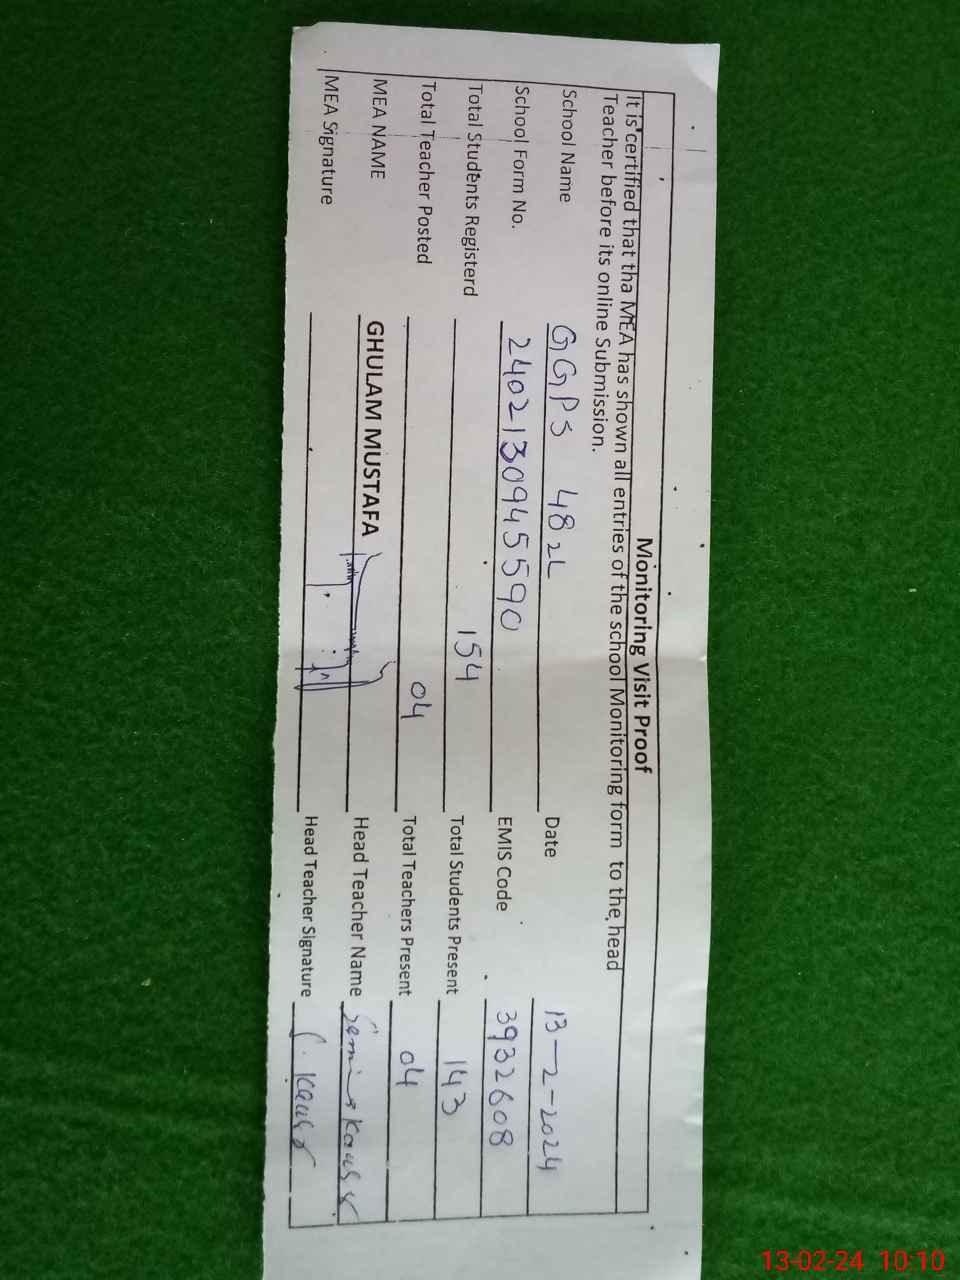 Monitoring Visit Proof
It is certified that tha MEA has shown all entries of the school Monitoring form to the head
Teacher before its online Submission.
School Name GGPS 48 2L Date 13-2-2024
School Form No. 2402130945590 EMIS Code 3932608
Total Students Registerd 154 Total Students Present 143
Total Teacher Posted 04 Total Teachers Present 04
MEA NAME GHULAM MUSTAFA Head Teacher Name Kausar
MEA Signature Head Teacher Signature Kausar
13-02-24 10:10